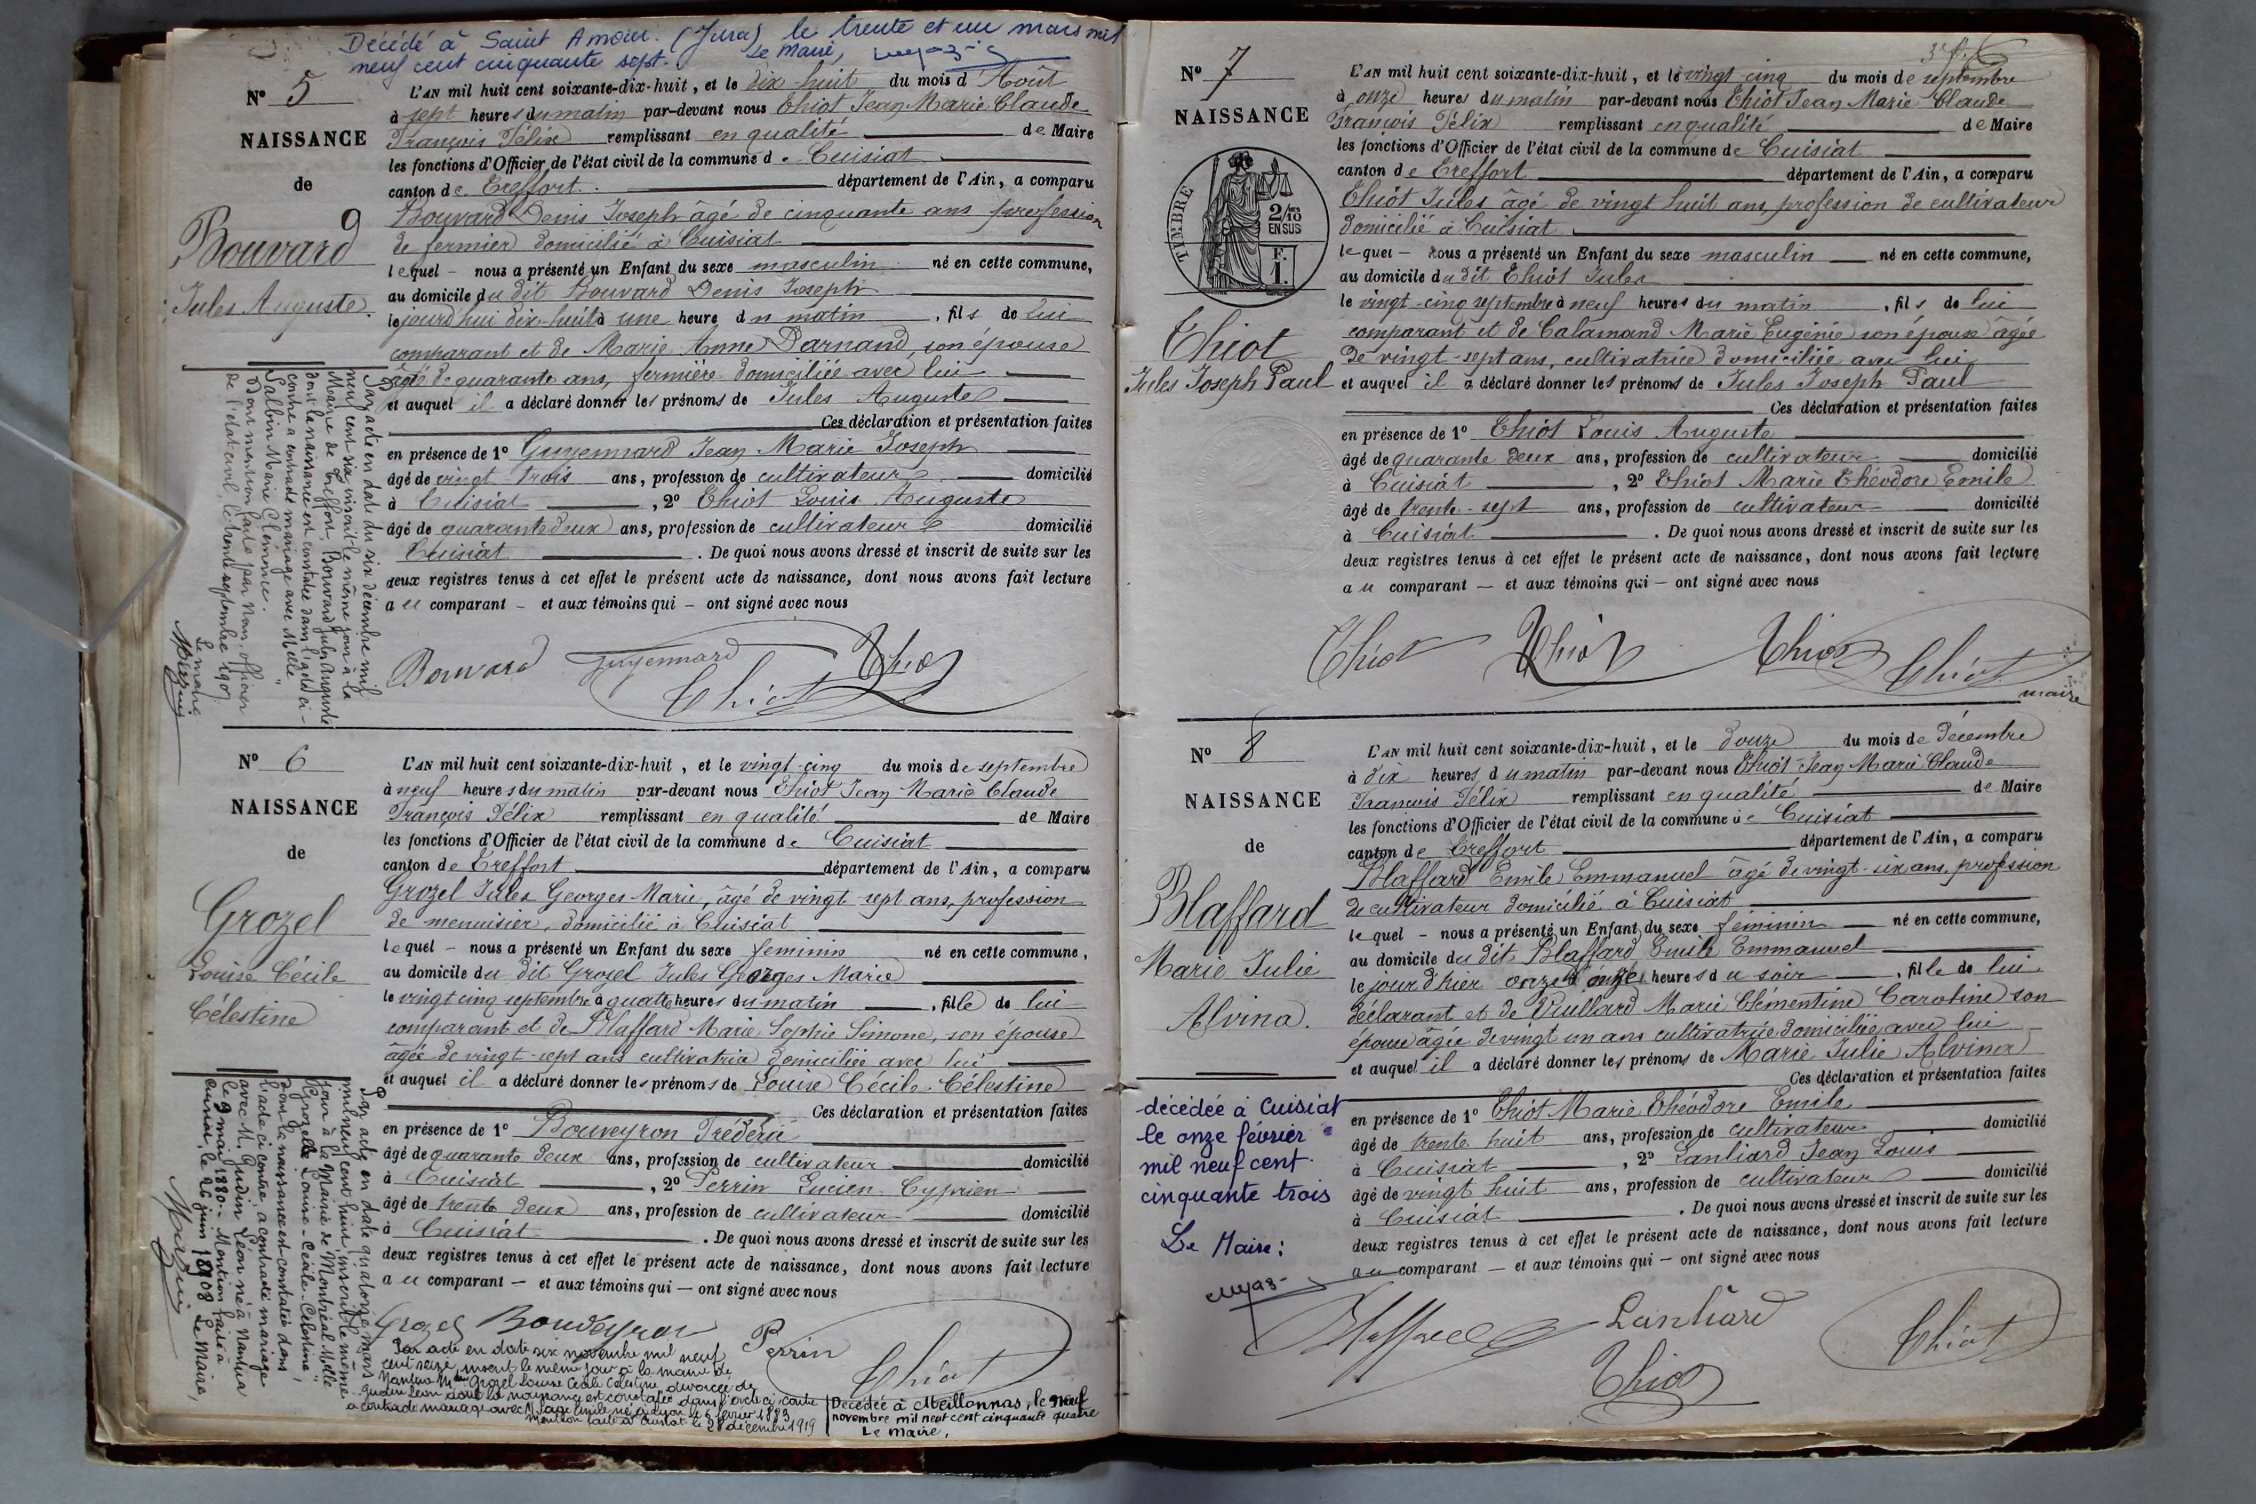 Décédé à Saint Amour (Jura) le trente et un mars mil
neuf cent cinquante sept. Le Maire,
N° 5
NAISSANCE
de
Bouvard
Jules Auguste.
L'AN mil huit cent soixante-dix-huit, et le dix-huit du mois d'Août
à sept heures du matin par-devant nous Thiot Jean Marie Claude
François Félix remplissant en qualité de Maire
les fonctions d'Officier de l'état civil de la commune de Cuisiat
canton de Treffort département de l'Ain, a comparu
Bouvard Denis Joseph âgé de cinquante ans profession
de fermier domicilié à Cuisiat
lequel - nous a présenté un Enfant du sexe masculin né en cette commune,
au domicile du dit Bouvard Denis Joseph
le jourd'hui dix-huit à une heure du matin, fils de lui
comparant et de Marie Anne Darnand, son épouse
âgée de quarante ans, fermière domiciliée avec lui
et auquel il a déclaré donner les prénoms de Jules Auguste
Ces déclaration et présentation faites
en présence de 1° Guyennard Jean Marie Joseph
âgé de vingt-trois ans, profession de cultivateur domicilié
à Cuisiat, 2° Thiot Louis Auguste
âgé de quarante deux ans, profession de cultivateur domicilié
Cuisiat. De quoi nous avons dressé et inscrit de suite sur les
deux registres tenus à cet effet le présent acte de naissance, dont nous avons fait lecture
au comparant - et aux témoins qui - ont signé avec nous
Bouvard Guyennard Thiot
Thiot
Par acte en date du six décembre mil
neuf cent six, inscrit le même jour à la
Mairie de Treffort, Bouvard Jules Auguste
dont la naissance est constatée dans l'acte ci-
contre a contracté mariage avec Melle
Salbin Marie Clémence.
Dont mention faite par Nous, officier
de l'état civil, le trente septembre 1907
Le maire,
N° 6
NAISSANCE
de
Grozel
Louise Cécile
Célestine
L'AN mil huit cent soixante-dix-huit, et le vingt-cinq du mois de septembre
à neuf heures du matin par-devant nous Thiot Jean Marie Claude
François Félix remplissant en qualité de Maire
les fonctions d'Officier de l'état civil de la commune de Cuisiat
canton de Treffort département de l'Ain, a comparu
Grozel Jules Georges Marie, âgé de vingt-sept ans, profession
de menuisier, domicilié à Cuisiat
lequel - nous a présenté un Enfant du sexe feminin né en cette commune,
au domicile du dit Grozel Jules Georges Marie
le vingt cinq septembre à quatre heures du matin, fille de lui
comparant et de Blaffard Marie Sophie Simone, son épouse
âgée de vingt-sept ans cultivatrice domiciliée avec lui
et auquel il a déclaré donner les prénoms de Louise Cécile Célestine
Ces déclaration et présentation faites
en présence de 1° Bouveyron Frédéric
âgé de quarante deux ans, profession de cultivateur domicilié
à Cuisiat, 2° Perrin Lucien Cyprien
âgé de trente deux ans, profession de cultivateur domicilié
à Cuisiat. De quoi nous avons dressé et inscrit de suite sur les
deux registres tenus à cet effet le présent acte de naissance, dont nous avons fait lecture
au comparant - et aux témoins qui - ont signé avec nous
Grozel Bouveyron Perrin
Thiot
Par acte en date quatorze mars
mil neuf cent huit, inscrit le même
jour à la Mairie de Montréal Melle
Grozel Louise-Cécile-Célestine,
dont la naissance est constatée dans
l'acte ci-contre, a contracté mariage
avec M. Gudin Léon né à Nantua
le 9 mai 1880. Mention faite à
Cuisiat, le 26 juin 1908 Le Maire,
Par acte en date six novembre mil neuf
cent seize, inscrit le même jour à la mairie de
Nantua Mme Grozel Louise Cécile Célestine, divorcée de
Gudin Léon dont la naissance est constatée dans l'acte ci-contre
a contracté mariage avec
mention faite à Cuisiat le 28 décembre 1919
Décédée à Meillonnas, le neuf
novembre mil neuf cent cinquante quatre
Le Maire,
N° 7
NAISSANCE
TIMBRE
2/10
EN SUS
F.
1.
Thiot
Jules Joseph Paul
L'AN mil huit cent soixante-dix-huit, et le vingt-cinq du mois de septembre
à onze heures du matin par-devant nous Thiot Jean Marie Claude
François Félix remplissant en qualité de Maire
les fonctions d'Officier de l'état civil de la commune de Cuisiat
canton de Treffort département de l'Ain, a comparu
Thiot Jules âgé de vingt huit ans, profession de cultivateur
domicilié à Cuisiat
lequel - nous a présenté un Enfant du sexe masculin né en cette commune,
au domicile du dit Thiot Jules
le vingt-cinq septembre à neuf heures du matin, fils de lui
comparant et de Calamand Marie Eugénie son épouse âgée
de vingt-sept ans, cultivatrice domiciliée avec lui
et auquel il a déclaré donner les prénoms de Jules Joseph Paul
Ces déclaration et présentation faites
en présence de 1° Thiot Louis Auguste
âgé de quarante deux ans, profession de cultivateur domicilié
à Cuisiat, 2° Thiot Marie Théodore Emile
âgé de trente-sept ans, profession de cultivateur domicilié
à Cuisiat. De quoi nous avons dressé et inscrit de suite sur les
deux registres tenus à cet effet le présent acte de naissance, dont nous avons fait lecture
au comparant - et aux témoins qui - ont signé avec nous
Thiot Thiot Thiot Thiot
maire
N° 8
NAISSANCE
de
Blaffard
Marie Julie
Alvina.
L'AN mil huit cent soixante-dix-huit, et le douze du mois de décembre
à dix heures du matin par-devant nous Thiot Jean Marie Claude
François Félix remplissant en qualité de Maire
les fonctions d'Officier de l'état civil de la commune de Cuisiat
canton de Treffort département de l'Ain, a comparu
Blaffard Emile Emmanuel âgé de vingt-six ans, profession
de cultivateur domicilié à Cuisiat
lequel - nous a présenté un Enfant du sexe féminin né en cette commune,
au domicile du dit Blaffard Emile Emmanuel
le jour d'hier onze à onze heures du soir, fille de lui
déclarant et de Vuillard Marie Clémentine Caroline son
épouse âgée de vingt un ans cultivatrice domiciliée avec lui
et auquel il a déclaré donner les prénoms de Marie Julie Alvina
Ces déclaration et présentation faites
en présence de 1° Thiot Marie Théodore Emile
âgé de trente huit ans, profession de cultivateur domicilié
à Cuisiat, 2° Lanliard Jean Louis
âgé de vingt huit ans, profession de cultivateur domicilié
à Cuisiat. De quoi nous avons dressé et inscrit de suite sur les
deux registres tenus à cet effet le présent acte de naissance, dont nous avons fait lecture
au comparant - et aux témoins qui - ont signé avec nous
Blaffard Lanliard
Thiot Thiot
décédée à Cuisiat
le onze février
mil neuf cent
cinquante trois
Le Maire: